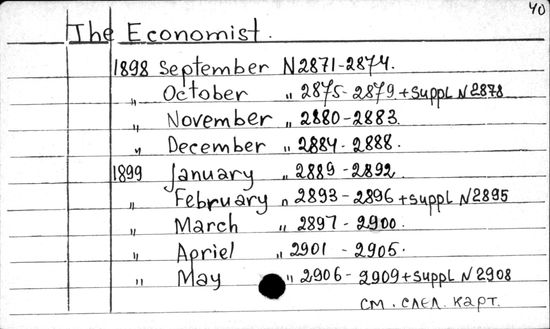 40
The Economist.
1898 September N2871-2874.
" October " 2875-2879 + suppl N2878
" November " 2880-2883
" December " 2884-2888.
1899 January " 2889-2892
" February " 2893-2896 + suppl N2895
" March " 2897-2900.
" Apriel " 2901 - 2905.
" May " 2906-2909 + suppl N2908
см. след. карт.